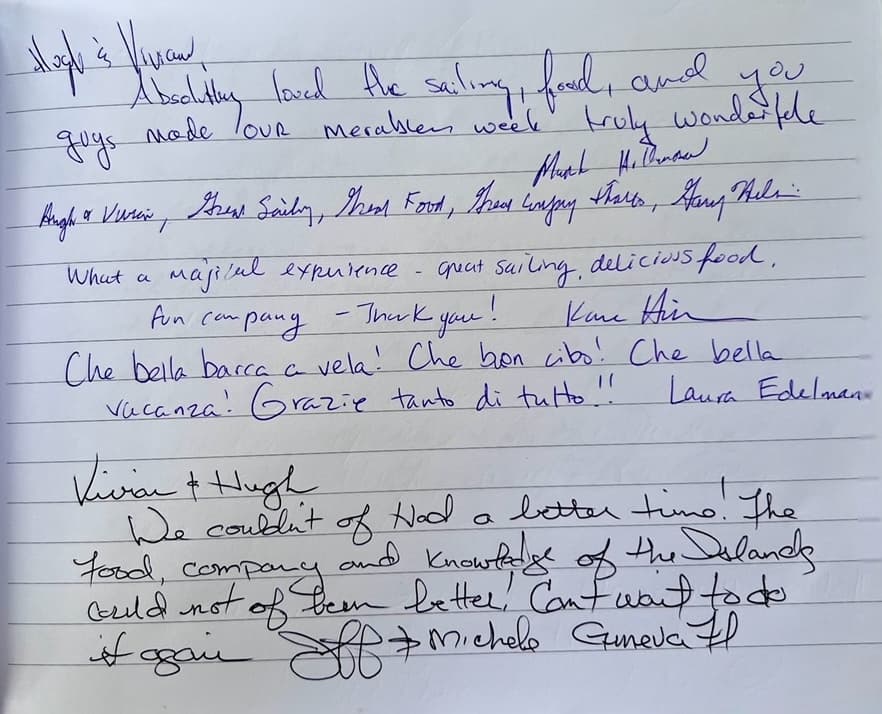 Hugh & Vivian,
Absolutley loved the sailing, food, and you
guys made our week truly wonderfule
Hugh & Vivian, Great Sailing, Great Food, Great Company thanks, Gary
What a majical experience - great sailing, delicious food,
fun company - Thank you!
Che bella barca a vela! Che bon cibo! Che bella
vacanza! Grazie tanto di tutto!! Laura Edelman
Vivian & Hugh
We couldn't of Had a better time! The
Food, company and Knowledge of the Islands
could not of been better! Can't wait to do
it again Jeff & Michele Geneva Fl